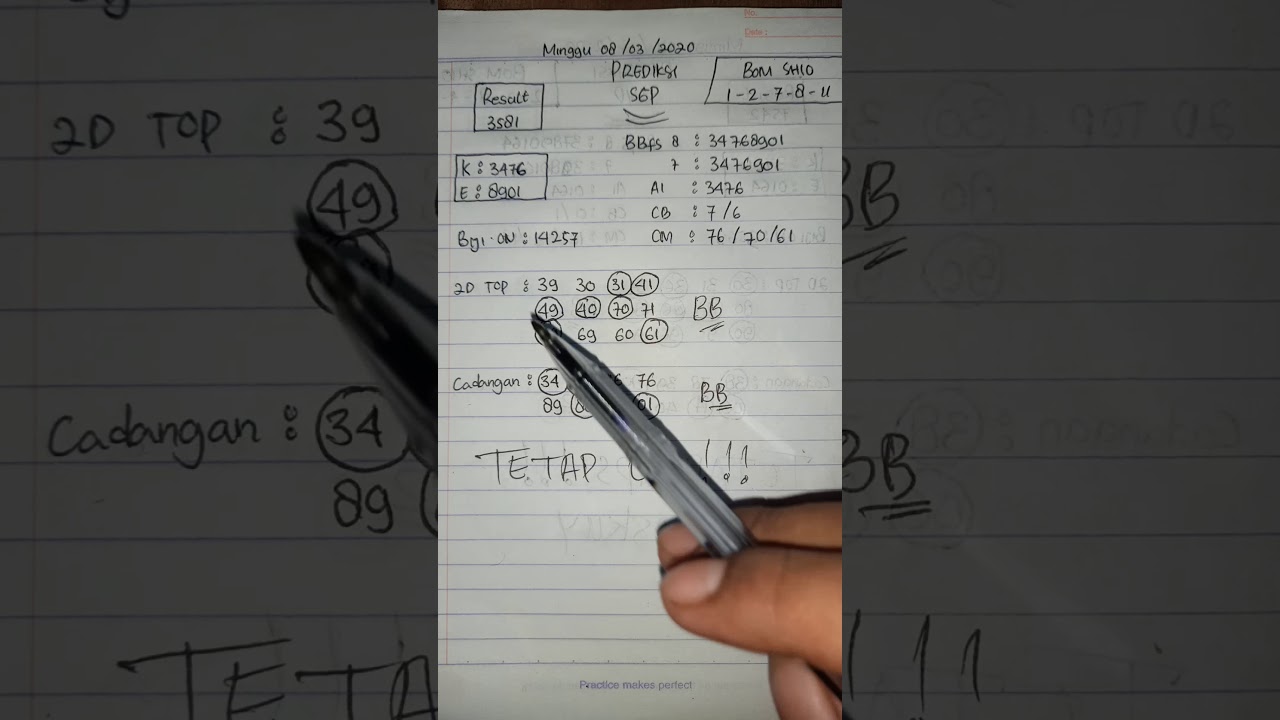 No.
Date:
Minggu 08/03/2020
PREDIKSI
SGP
Result
3581
BOM SHIO
1-2-7-8-11
BBfs 8 : 34768901
7 : 3476901
K : 3476
E : 8901
AI : 3476
CB : 7/6
Biji ON : 14257
CM : 76/70/61
2D TOP : 39 30 31 41
49 40 70 71 BB
69 60 61
Cadangan : 34 76 BB
89 01
TETAP !!!
Practice makes perfect
2D TOP : 39
49
Cadangan : 34
89
TETA
BB
BB
!!!